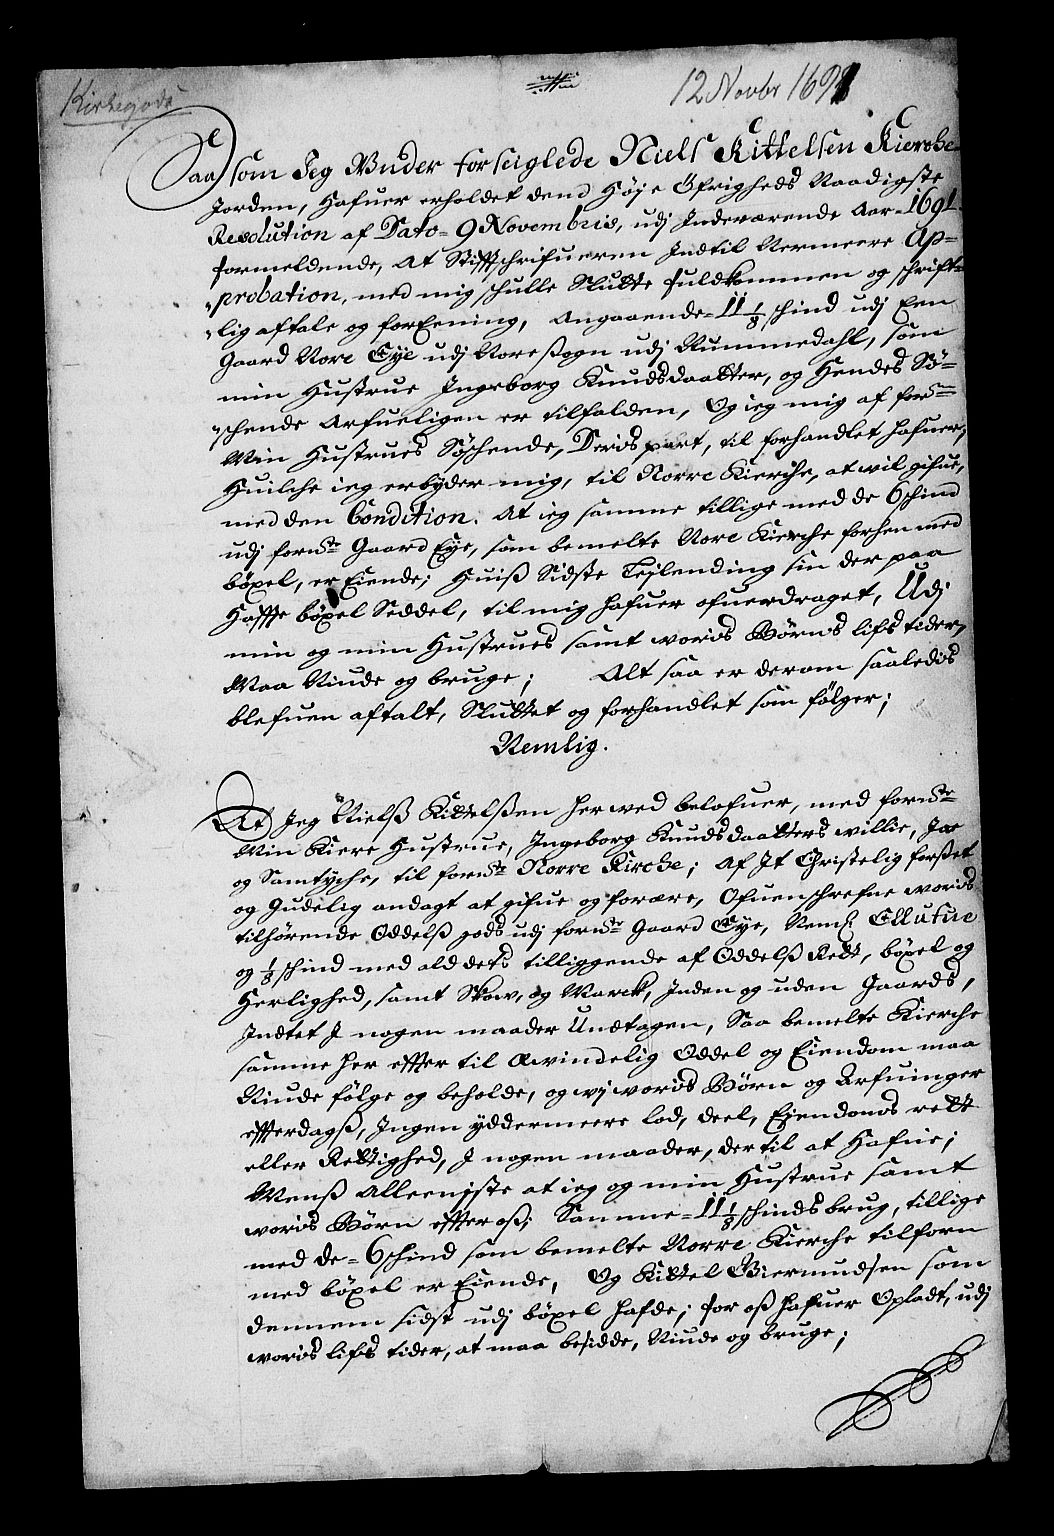 Kirkegods
12 Novbr 1691
Saasom Jeg Vnder forseiglede Niels Kittelsen Kierche-
Jorden, Hafuer erholdet dend Høje Öfrigheds Naadigste
Resolution af Dato = 9 Novembris, udj Indeværende Aar = 1691.
formeldende, at Stifftschrifueren Indtil Nermeere Ap=
probation, med mig schulle Slutte fuldkommen og schrift=
lig aftale og forEening, Angaaende = 11 1/8 schind udj Een
Gaard Nore Eye udj Nore Sogn udj Nummedahl, som
min Hustrue Ingeborg Knudsdaatter, og Hendes Sö=
schende Arfueligen er tilfalden, Og ieg mig af forne
Min Hustrues Søschende, Deris part, til forhandlet hafuer;
Huilche ieg erbyder mig, til Norre Kierche, at wil gifue,
med den Condition. At ieg samme tillige med de 6 schind
udj fornte Gaard Eye, som bemelte Nore Kierche forhen med
böxel, er Eiende; Huiß Sidste Leylending sin der paa
Haffte böxel Seddel, til mig hafuer ofuerdraget, Udj
min og min Hustrues samt woris Börns lifs tider,
Maa Niude og bruge; Alt saa er derom saaledis
blefuen aftalt, Sluttet og forhandlet som fölger;
Nemlig.
At Jeg Nielß Kittelßen herwed belofuer, med fornte
Min Kiere Hustrue, Ingeborg Knudsdaatters willie, Jae
og Samtyche, til fornte Norre Kirche; Af It Christelig forset
og Gudelig andagt at gifue og forære, Ofuenschrefne woris
tilhörende Oddelß gods udj fornte Gaard Eye, Neml. Ellufue
og 1/8 schind med ald dets tilliggende af Oddelß Rett, böxel og
Herlighed, samt Skow, og Marck, Inden og uden Gaards,
Indtet J nogen maader Undtagen, Saa bemelte Kierche
samme her effter til Æwindelig Oddel og Eiendom maa
Niude fölge og beholde, og wj woris Börn og Arfuinger
effterdagß, Ingen yddermeere lod, deel, Eiendoms rett
eller Rettighed, J nogen maader, der til at Hafue;
Menß Alleeniste at ieg og min Hustrue samt
woris Börn effter oß; Samme = 11 1/8 schinds brug, tillige
med de = 6 schind som bemelte Norre Kierche tilforn
med böxel er Eiende, Og Kittel Giermundsen som
dennem sidst udj böxel hafde; for oß hafuer Opladt, udj
woris lifs tider, at maa besidde, Niude og bruge;